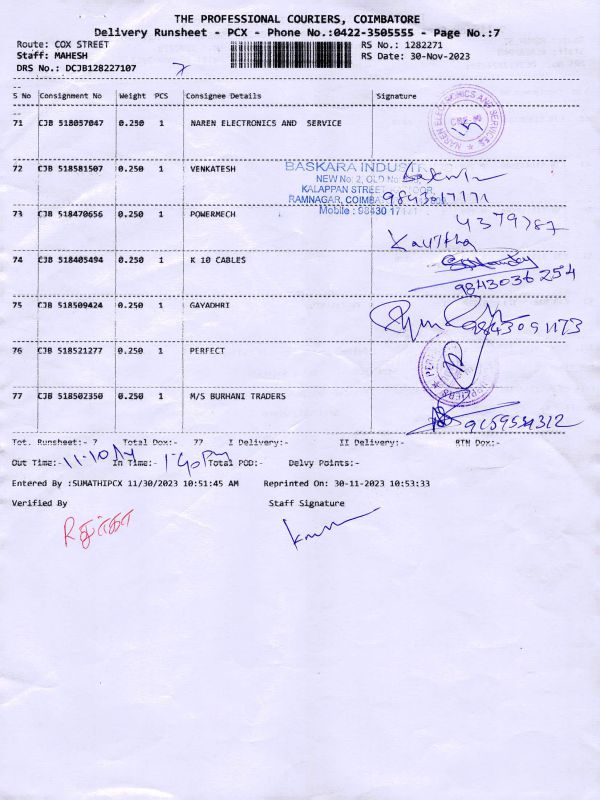 THE PROFESSIONAL COURIERS, COIMBATORE
Delivery Runsheet - PCX - Phone No.:0422-3505555 - Page No.:7
Route: COX STREET RS No.: 1282271
Staff: MAHESH RS Date: 30-Nov-2023
DRS No.: DCJB128227107
S No Consignment No Weight PCS Consignee Details Signature
71 CJB 518057047 0.250 1 NAREN ELECTRONICS AND SERVICE
72 CJB 518581507 0.250 1 VENKATESH
BASKARA INDUST
NEW No: 2, OLD No
KALAPPAN STREET
RAMNAGAR, COIMBA
Mobile : 98430 17171
9843017171
73 CJB 518470656 0.250 1 POWERMECH
4379787
Kavitha
74 CJB 518405494 0.250 1 K 10 CABLES
9843036254
75 CJB 518509424 0.250 1 GAYADHRI
9843091173
76 CJB 518521277 0.250 1 PERFECT
77 CJB 518502350 0.250 1 M/S BURHANI TRADERS
Tot. Runsheet:- 7 Total Dox:- 77 I Delivery:- II Delivery:- RTN Dox:-
Out Time:- 11.10 AM In Time:- 1.40 PM Total POD:- Delvy Points:-
Entered By :SUMATHIPCX 11/30/2023 10:51:45 AM Reprinted On: 30-11-2023 10:53:33
Verified By Staff Signature